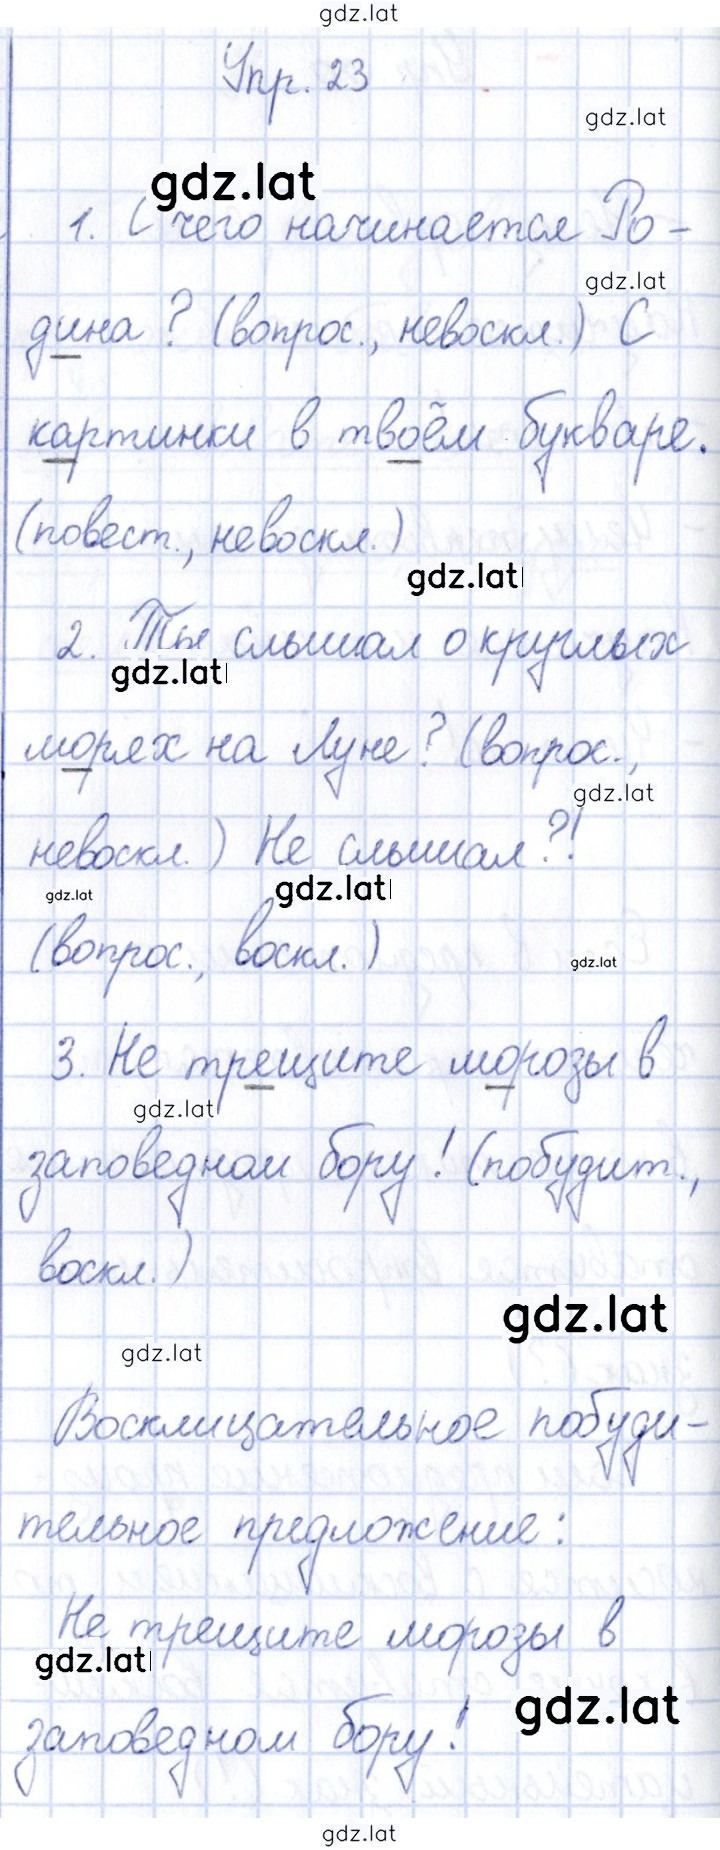 gdz.lat
Упр. 23
gdz.lat
gdz.lat
1. С чего начинается Ро-
gdz.lat
дина? (вопрос., невоскл.) С
картинки в твоём букваре.
(повест., невоскл.)
gdz.lat
2. Ты слышал о круглых
gdz.lat
морях на Луне? (вопрос.,
gdz.lat
невоскл.) Не слышал?!
gdz.lat
gdz.lat
(вопрос., воскл.)
gdz.lat
3. Не трещите морозы в
gdz.lat
заповедном бору! (побудит.,
воскл.)
gdz.lat
gdz.lat
Восклицательное побуди-
тельное предложение:
Не трещите морозы в
gdz.lat
gdz.lat
заповедном бору!
gdz.lat